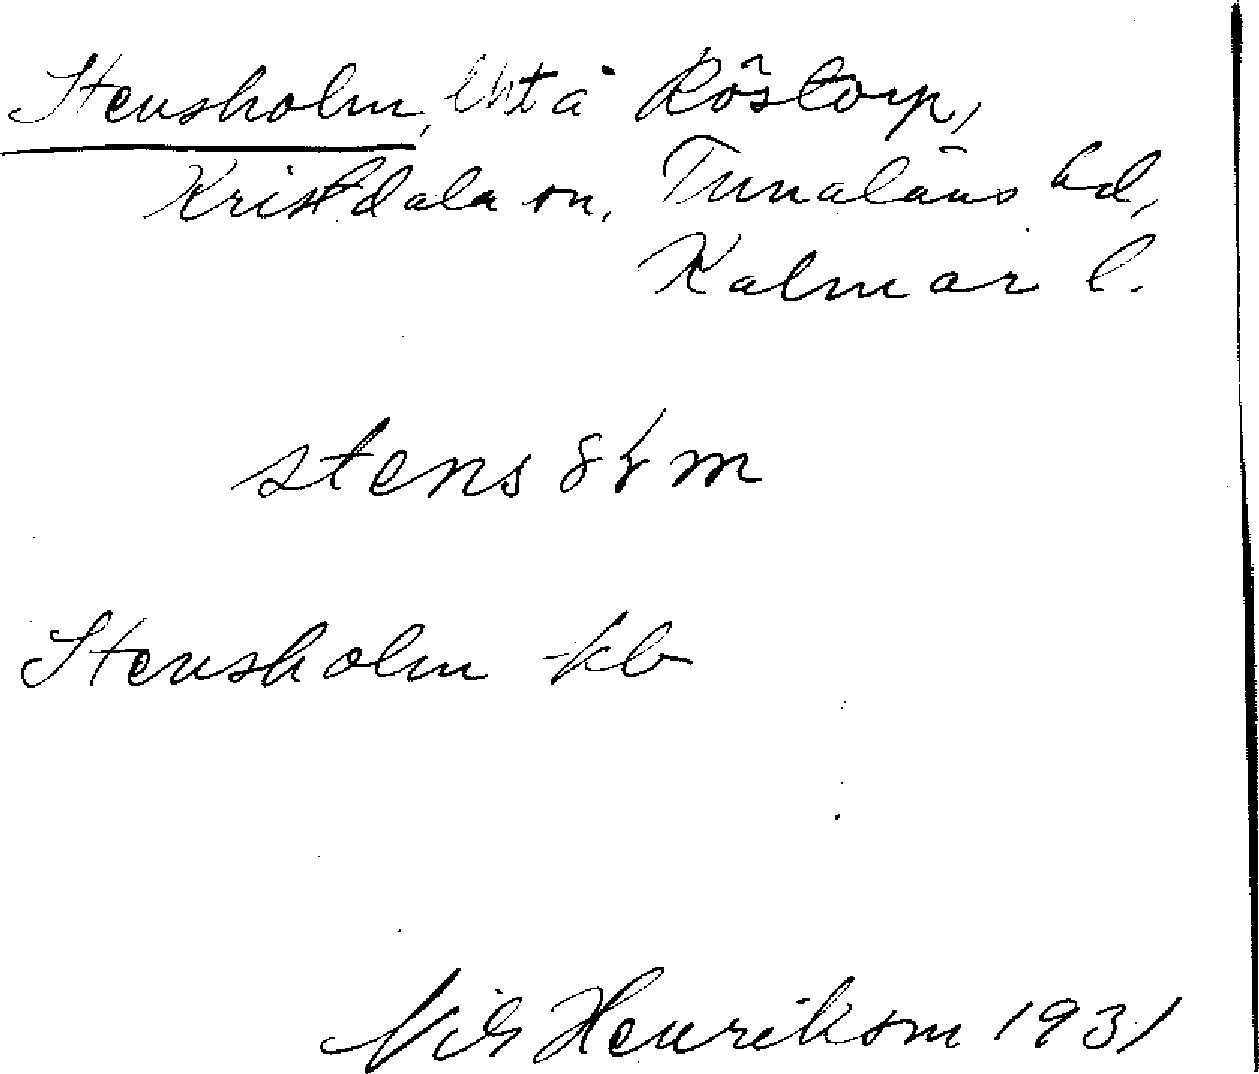 Stensholm, lht å Röstorp,
Kristdala sn, Tunaläns hd,
Kalmar l.
stens
Stensholm kb
Nils Henrikson 1931